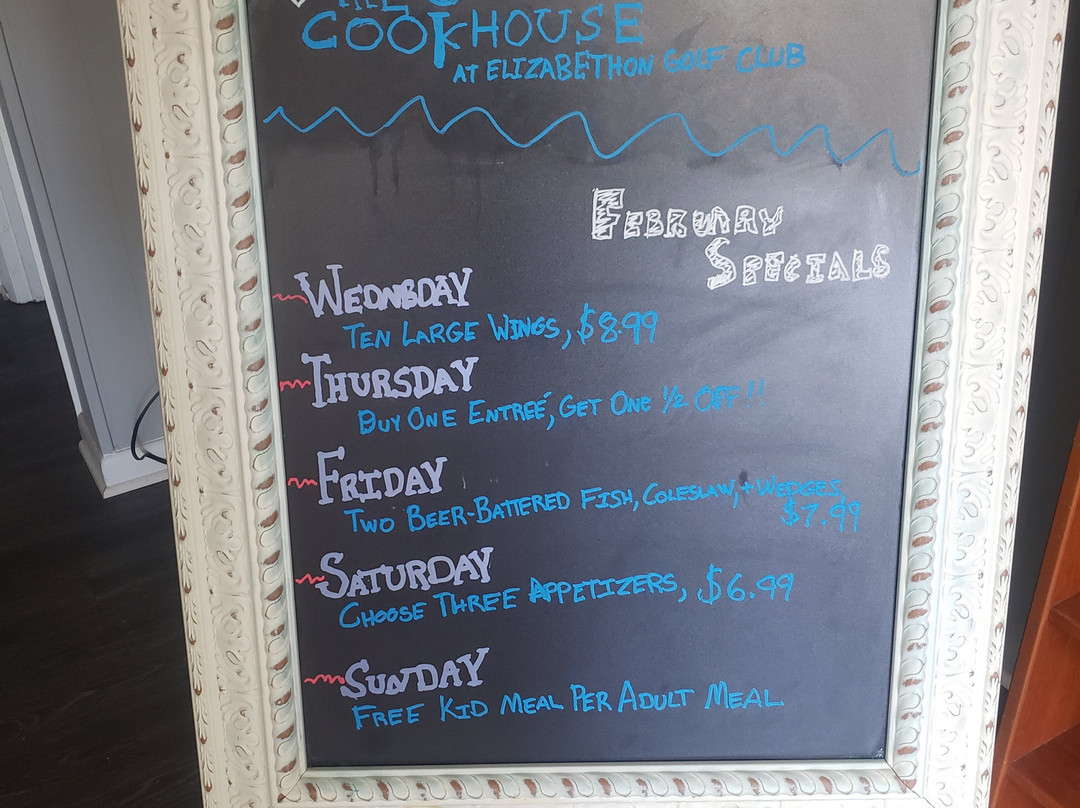 THE
COOKHOUSE
AT ELIZABETHON GOLF CLUB
FEBRUARY
SPECIALS
WEDNSDAY
TEN LARGE WINGS, $8.99
THURSDAY
BUY ONE ENTREÉ, GET ONE 1/2 OFF!!
FRIDAY
TWO BEER-BATTERED FISH, COLESLAW, + WEDGES,
$7.99
SATURDAY
CHOOSE THREE APPETIZERS, $6.99
SUNDAY
FREE KID MEAL PER ADULT MEAL